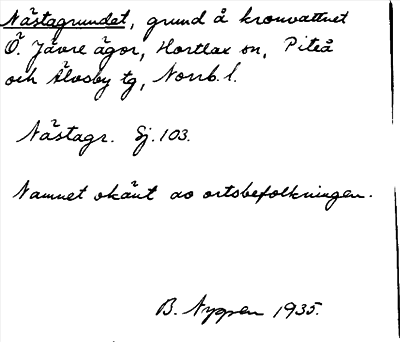 Nästagrundet, grund å kronvattnet
Ö. Jävre ägor, Hortlax sn, Piteå
och Älvsby tg, Norrb. l.
Nästagr. Sj. 103.
Namnet okänt av ortsbefolkningen.
B. Nygren 1935.